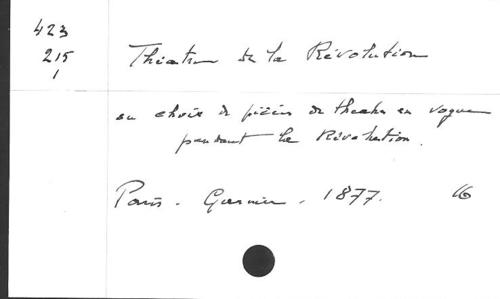 423
215
1
Théatre de la Révolution
ou choix de pièces de theatre en vogue
pendant la Révolution.
Paris - Garnier - 1877. 16